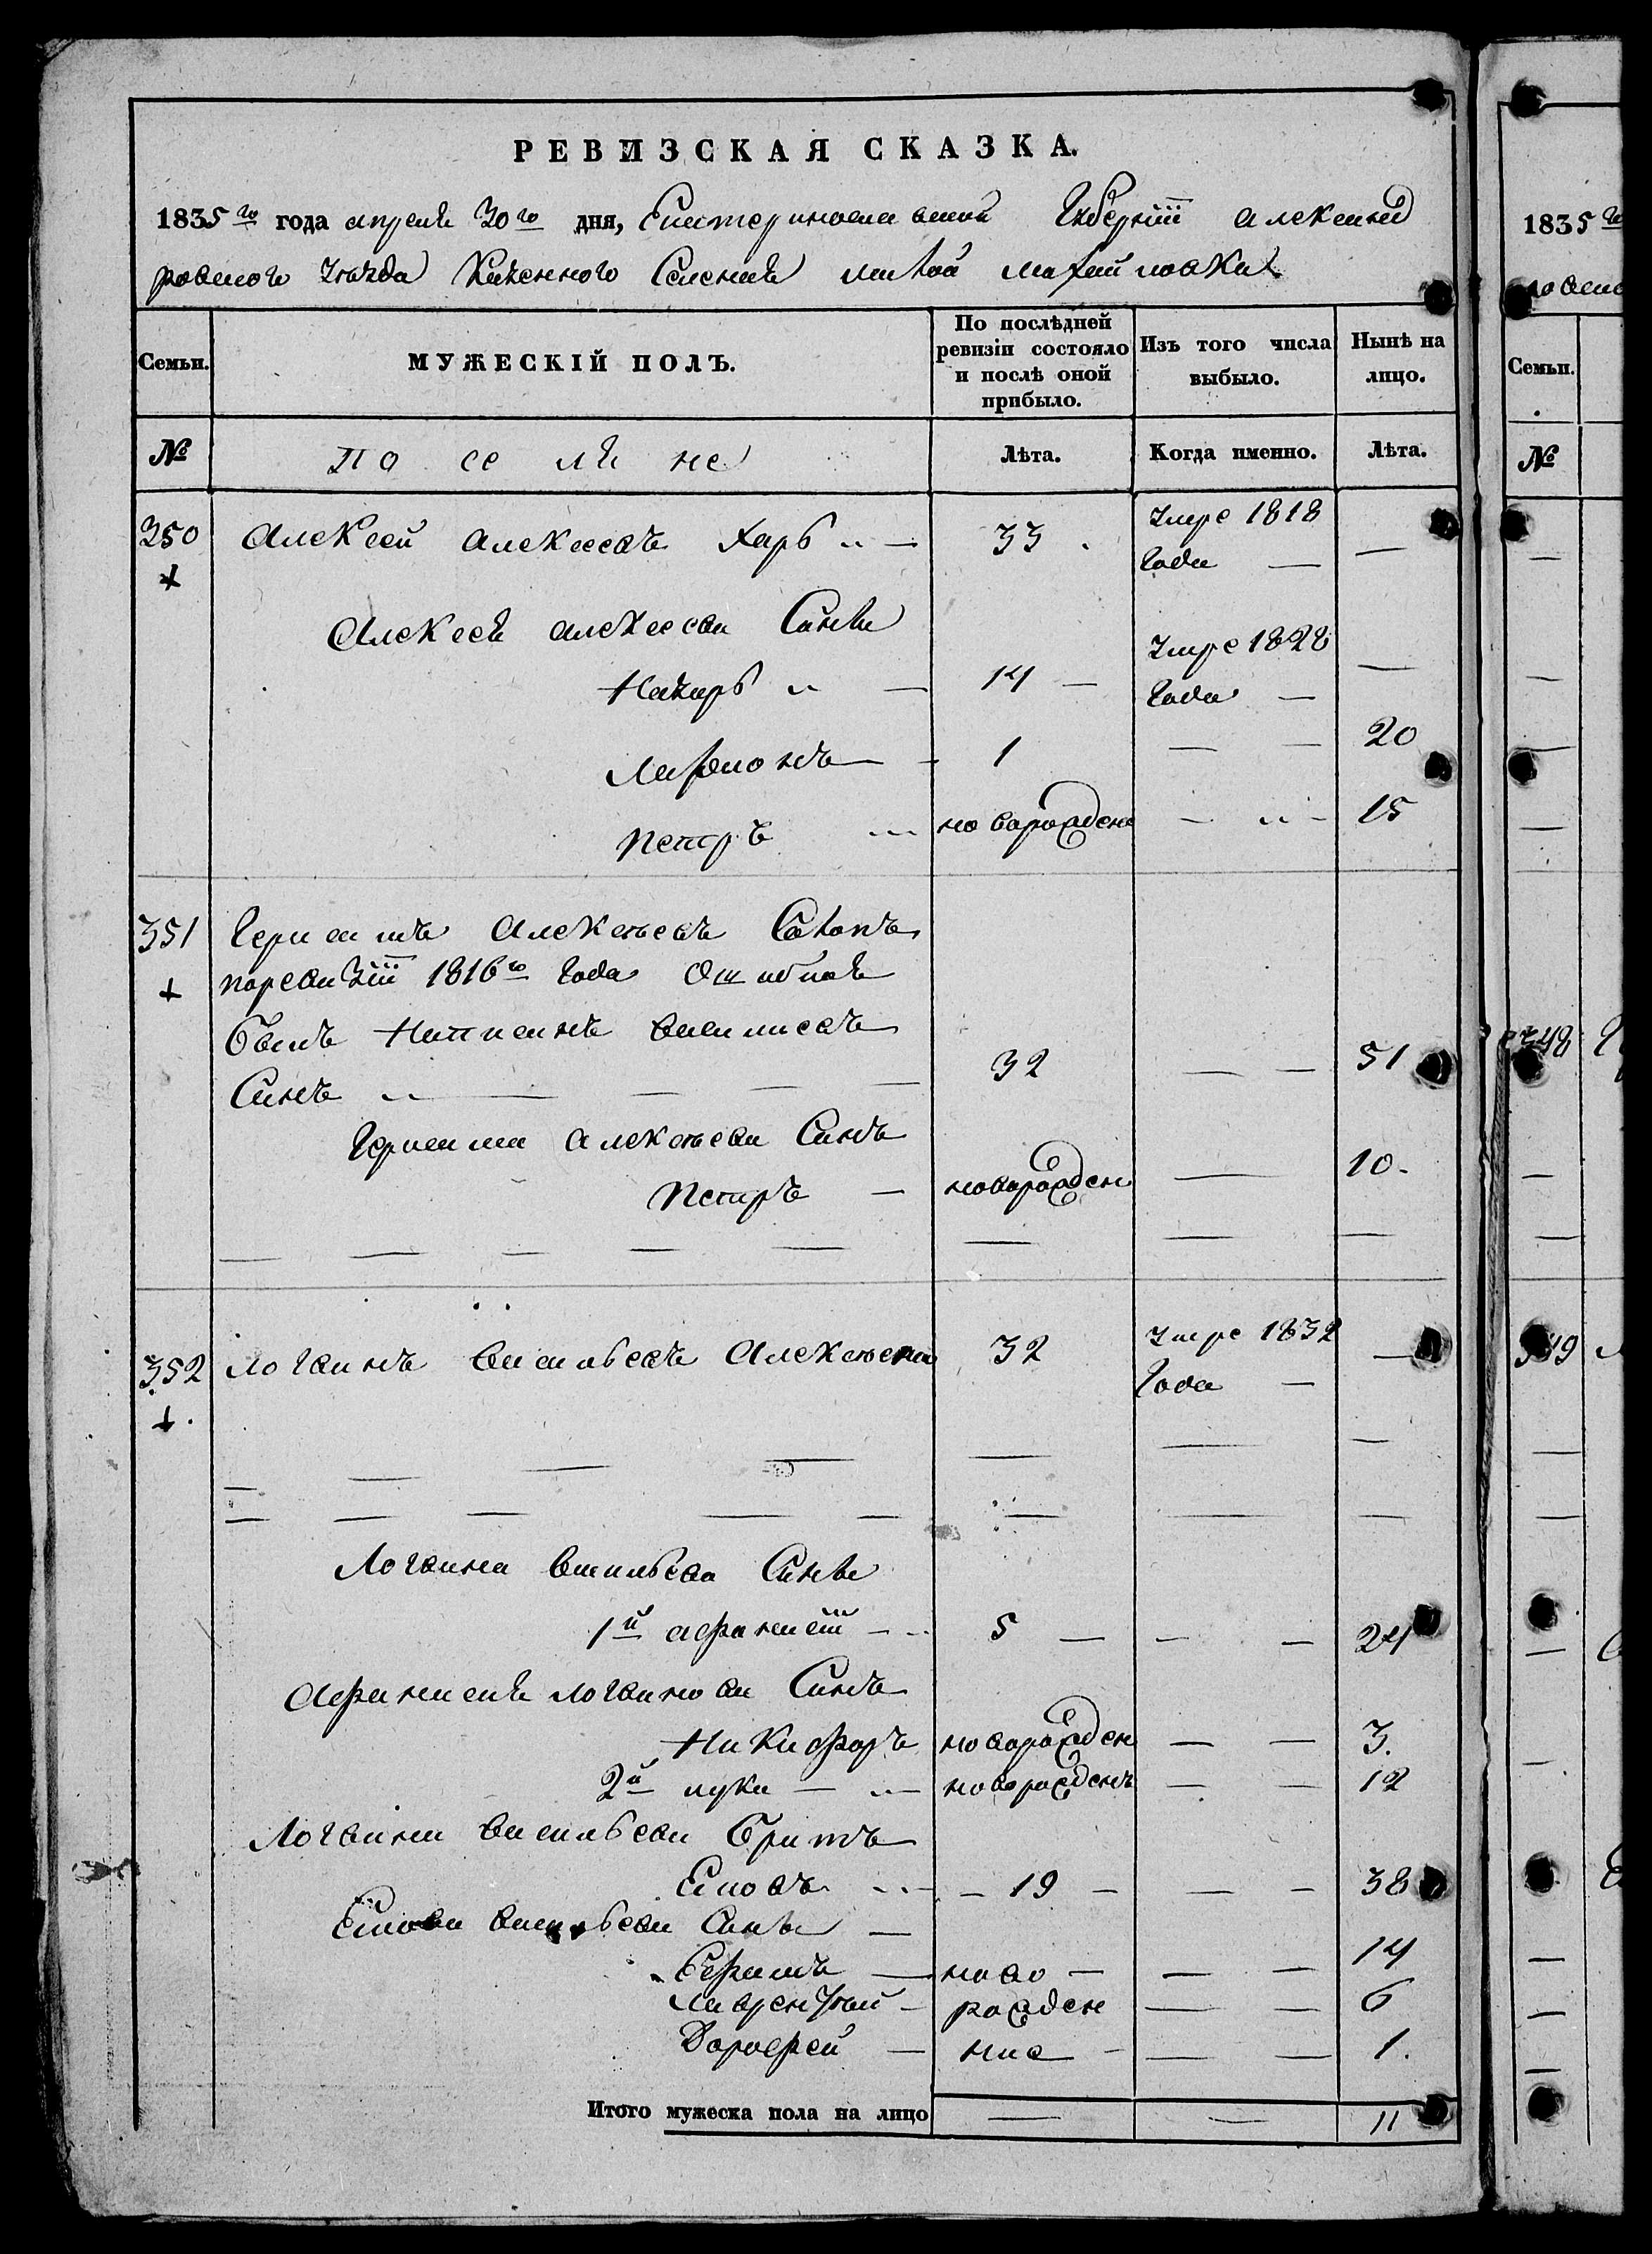 РЕВИЗСКАЯ СКАЗКА.
1835го года апреля 30го дня, Екатеринославской Губернiи александ
ровского уезда Казенного Селения малой михайловки
Семьи. МУЖЕСКІЙ ПОЛЪ. По послѣдней ревизіи состояло и послѣ оной прибыло. Изъ того числа выбыло. Нынѣ на лицо.
№ поселяне Лѣта. Когда именно. Лѣта.
350 Алексей Алексеевъ Харь 33 умре 1818 года —
Алексея алексеева Сины
Назаръ 14 — умре 1828 года — —
Ларионъ — 1 — — 20
петръ новорожден — — 15
351 Герасимъ Алексеевъ
поревизiи 1816го года Ошибкою
былъ написанъ васильевъ
Синъ — 32 — — 51
Герасима алексеева Синъ
петръ — новорожден — 10.
352 логвинъ васильевъ Алексеенко 32 умре 1832 года — —
Логвина васильева Сины
1й афанасiй — 5 — — — 24
Афанасия логвинова Синъ
Никифоръ новорожден — — 3.
2й лука — новорожденъ — — 12
Логвина васильева братъ
Сiловъ — 19 — — — 38
васильева Сины —
Ефимъ — ново — — — 14
лаврентий — рожден — — 6
Дорофей — ние — — — 1.
Итого мужеска пола на лицо — — 11
1835го
ровско
Семьи.
№
348
349